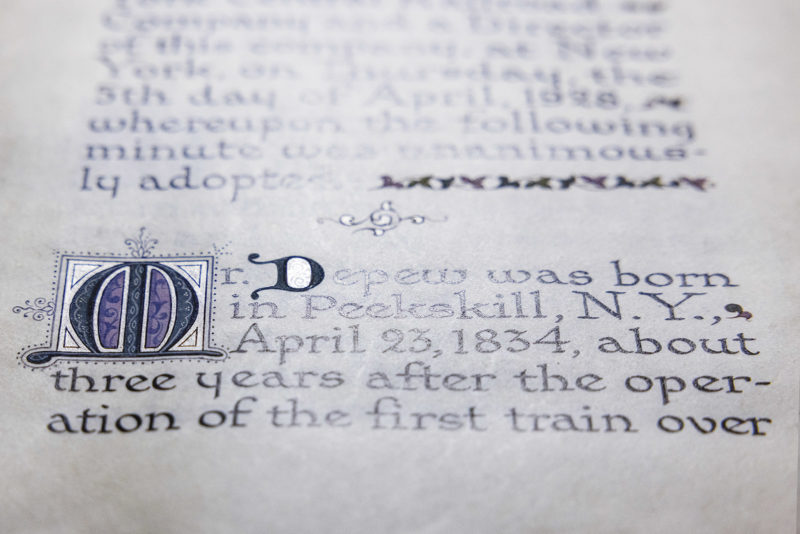 York Central Railroad
Company and a Director
of this company, at New
York, on Thursday, the
5th day of April, 1928,
whereupon the following
minute was unanimous-
ly adopted.
Mr. Depew was born
in Peekskill, N.Y.,
April 23, 1834, about
three years after the oper-
ation of the first train over